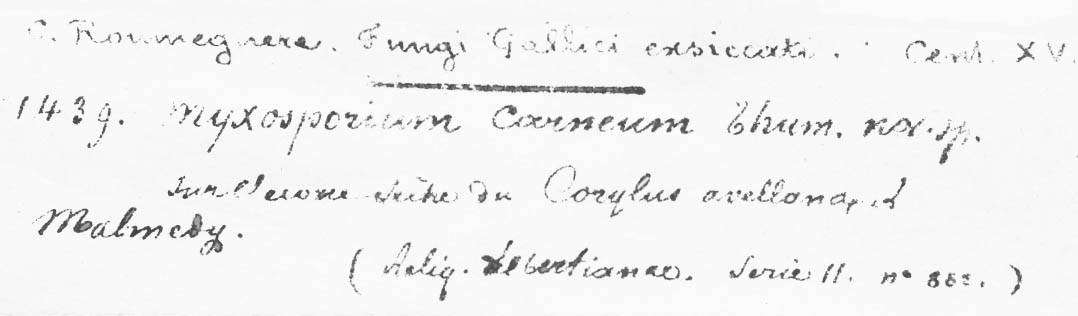 C. Roumeguere. Fungi Gallici exsiccati. Cent. XV.
1439. Myxosporium Carneum Thum. nov. sp.
Sur l'écorce sèche du Corylus avellana,
Malmedy.
(Reliq. Libertianae. Serie II. n°